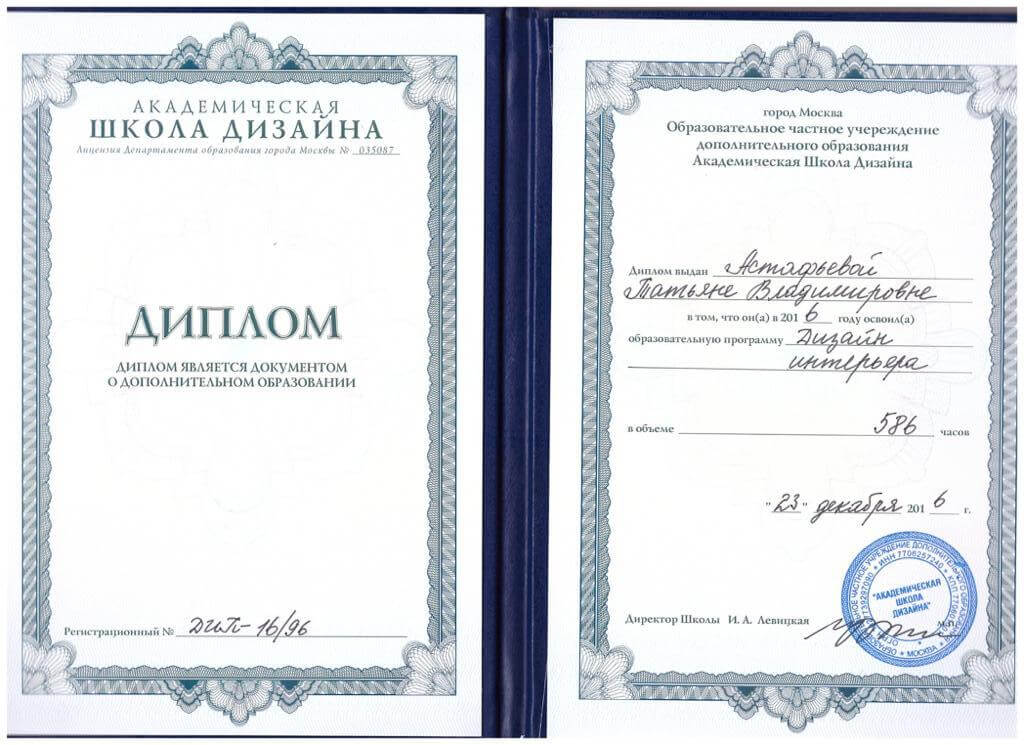 АКАДЕМИЧЕСКАЯ
ШКОЛА ДИЗАЙНА
Лицензия Департамента образования города Москвы № 035087
ДИПЛОМ
ДИПЛОМ ЯВЛЯЕТСЯ ДОКУМЕНТОМ
О ДОПОЛНИТЕЛЬНОМ ОБРАЗОВАНИИ
Регистрационный №
16/96
город Москва
Образовательное частное учереждение
дополнительного образования
Академическая Школа Дизайна
Диплом выдан Астафьевой
Татьяне Владимировне
в том, что он(а) в 2016 году освоил(а)
образовательную программу Дизайн
интерьера
в объеме 586 часов
"23" декабря 2016 г.
Директор Школы И. А. Левицкая
М.П.
"АКАДЕМИЧЕСКАЯ
ШКОЛА
ДИЗАЙНА"
ИНН 7706257240
МОСКВА